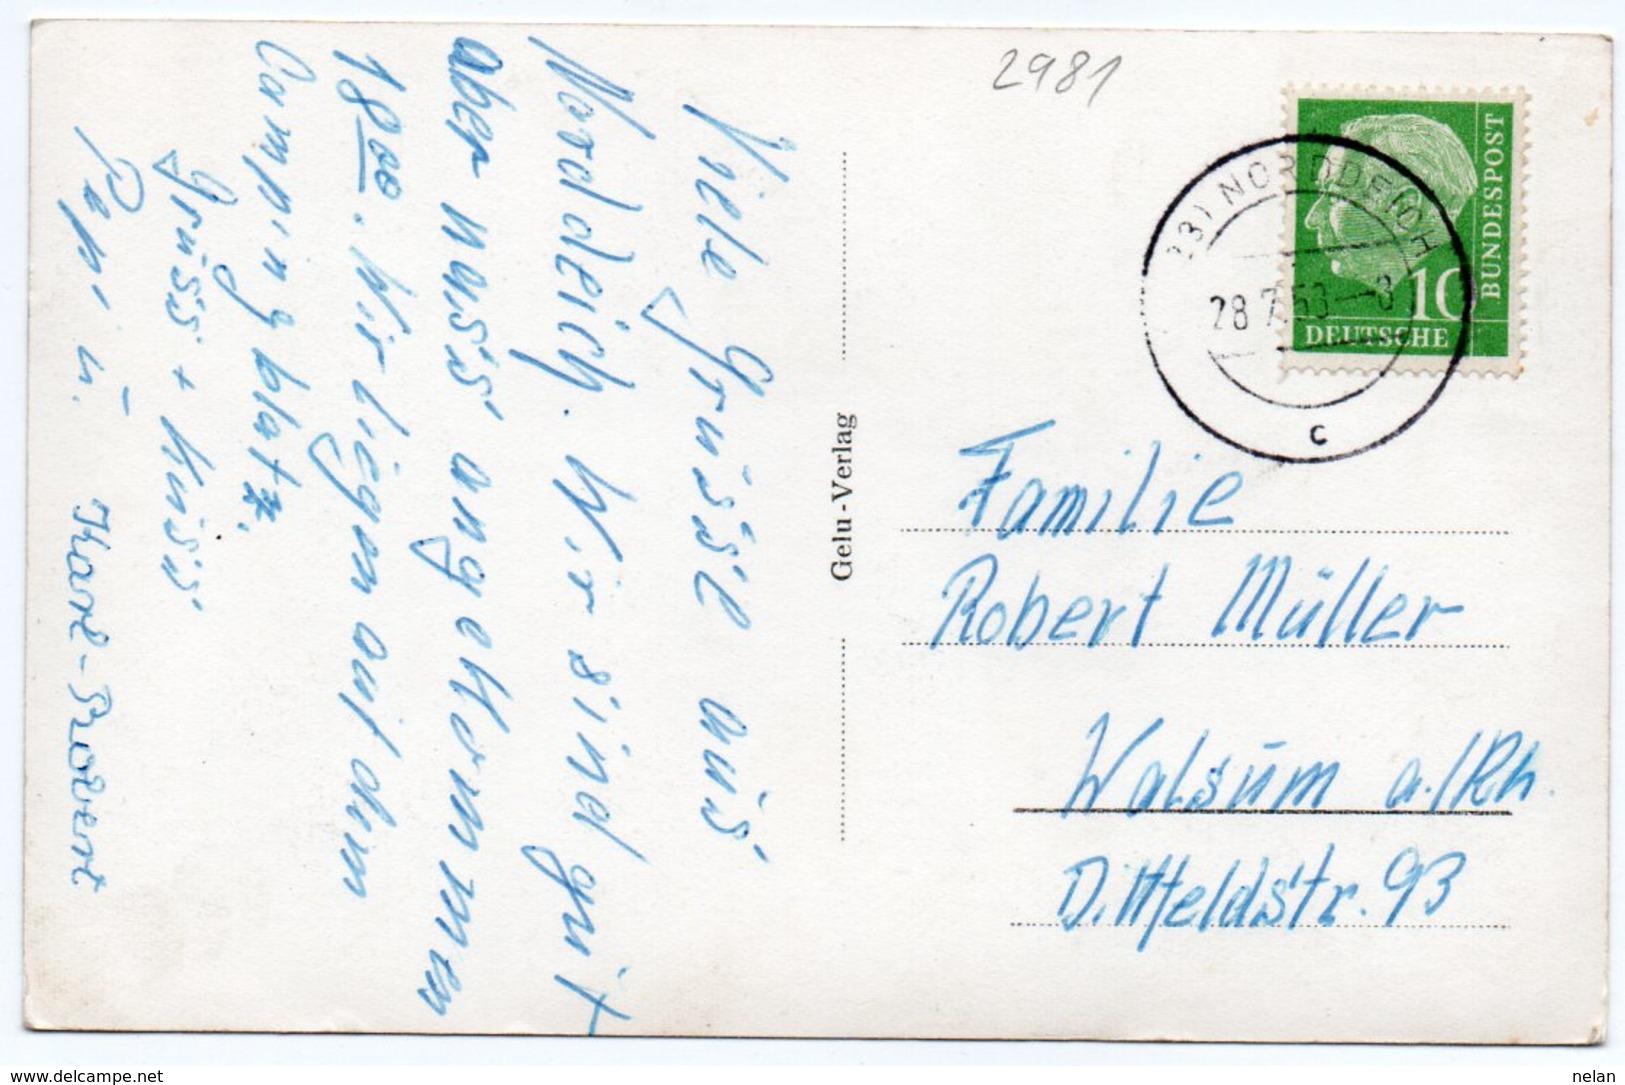 2981
BUNDESPOST
10
DEUTSCHE
NORDDEICH
c
Viele Grüsse aus
Norddeich. Wir sind gut
aber nass angekommen
18 00. Wir liegen auf dem
Campingblatz.
Gruss + Kuss
Papi u.
Karl-Robert
Gelu-Verlag
Familie
Robert Müller
Walsum a./Rh.
Dittfeldstr. 93
www.delcampe.net
nelan